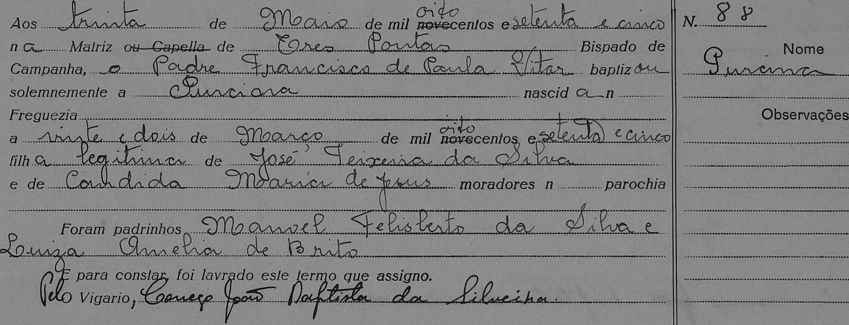 Aos trinta de Maio de mil oitocentos e setenta e cinco
na Matriz ou Capella de Tres Pontas Bispado de
Campanha, o Padre Francisco de Paula Vitor baptizou
solemnemente a Purciana nascida n
Freguezia
a vinte e dois de Março de mil oitocentos e setenta e cinco
filha legitima de José Teixeira da Silva
e de Candida Maria de Jesus moradores n parochia
Foram padrinhos Manoel Felisberto da Silva e
Luiza Amelia de Brito
E para constar, foi lavrado este termo que assigno.
Pelo Vigario, Conego João Baptista da Silveira.
N. 88
Nome
Observações